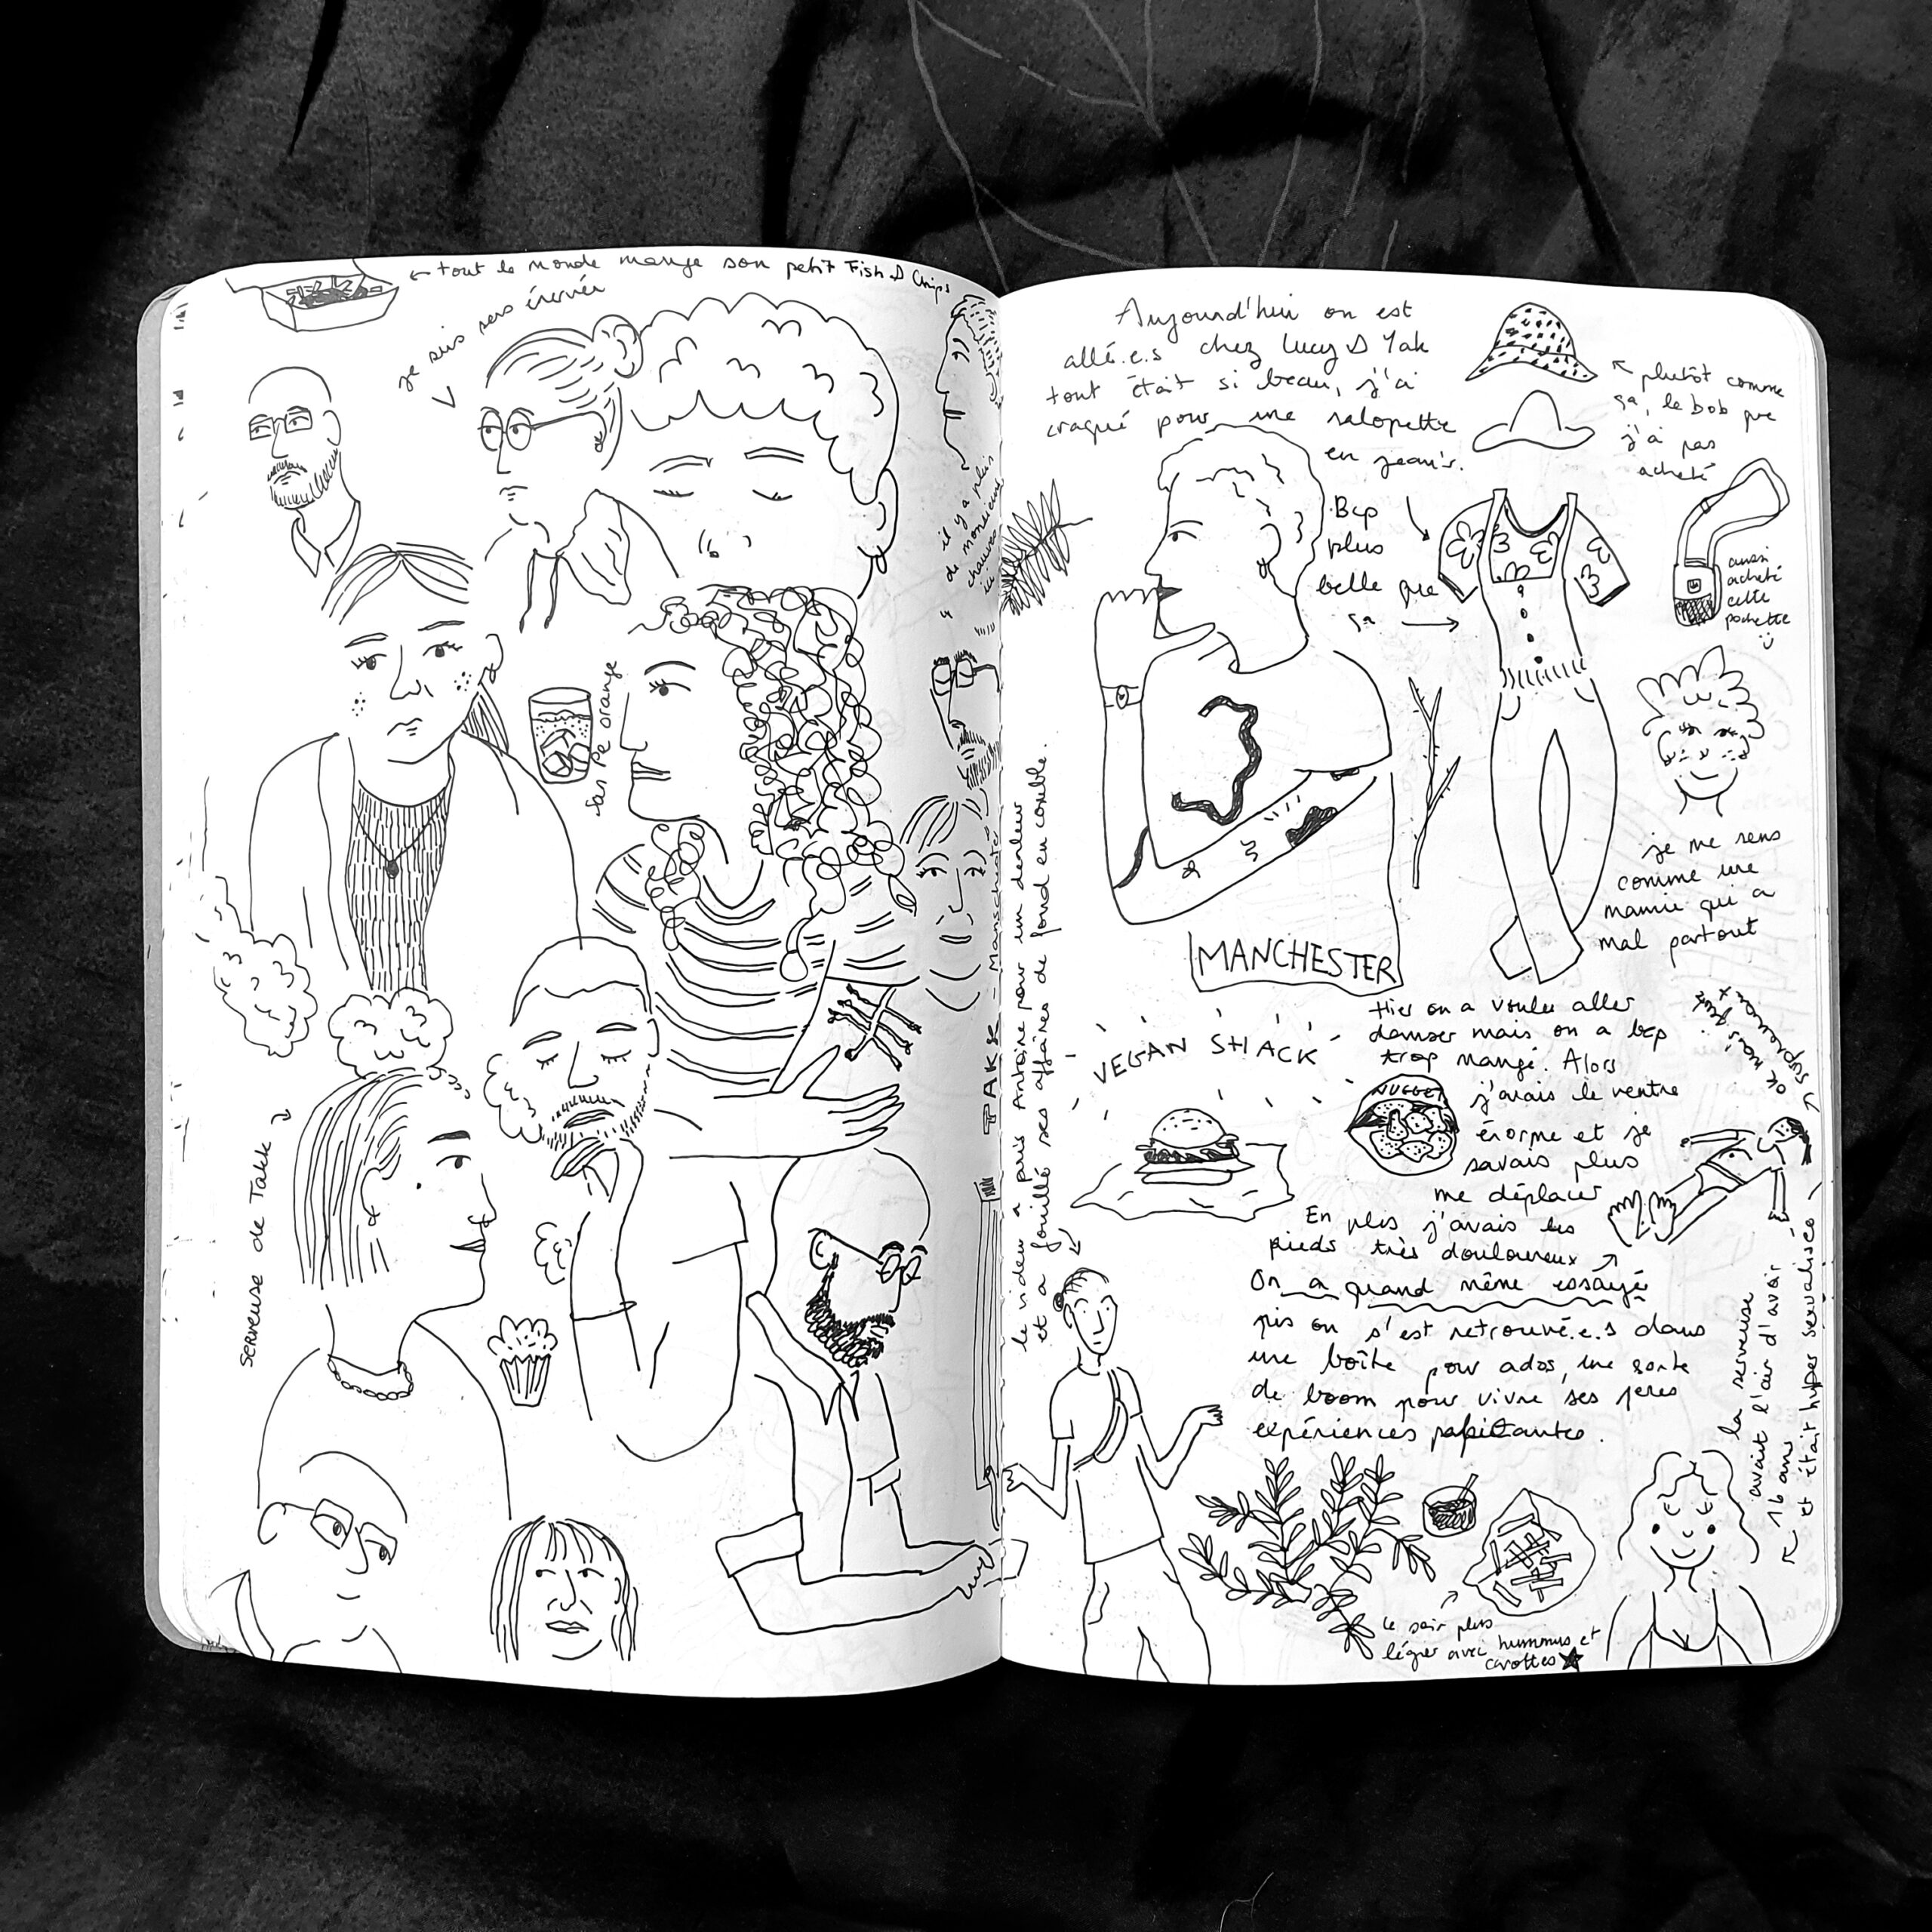 ← tout le monde mange son petit Fish & Chips
je suis sens énervée
San Pe orange
il y a plus
de monsieurs
chauves
ici
TAKK - Manschester
serveuse de Takk
le videur a pris Antoine pour un dealeur
et a fouillé ses affaires de fond en comble.
Aujourd'hui on est
allé.e.s chez Lucy & Yak
tout était si beau, j'ai
craqué pour une salopette
en jean's.
plutôt comme
ça, le bob que
j'ai pas
acheté
Bcp
plus
belle que
ça →
aussi
acheté
cette
pochette
je me sens
comme une
mamie qui a
mal partout
MANCHESTER
VEGAN SHACK
Hier on a voulu aller
danser mais on a bcp
trop mangé. Alors
NUGGET
j'avais le ventre
énorme et je
savais plus
me déplacer
En plus j'avais les
pieds très douloureux
On a quand même essayé
pis on s'est retrouvé.e.s dans
une boîte pour ados, une sorte
de boom pour vivre ses 1eres
expériences
la serveuse
avait l'air d'avoir
16 ans
et était hyper sexualisée
Le soir plus
léger avec hummus et
carottes